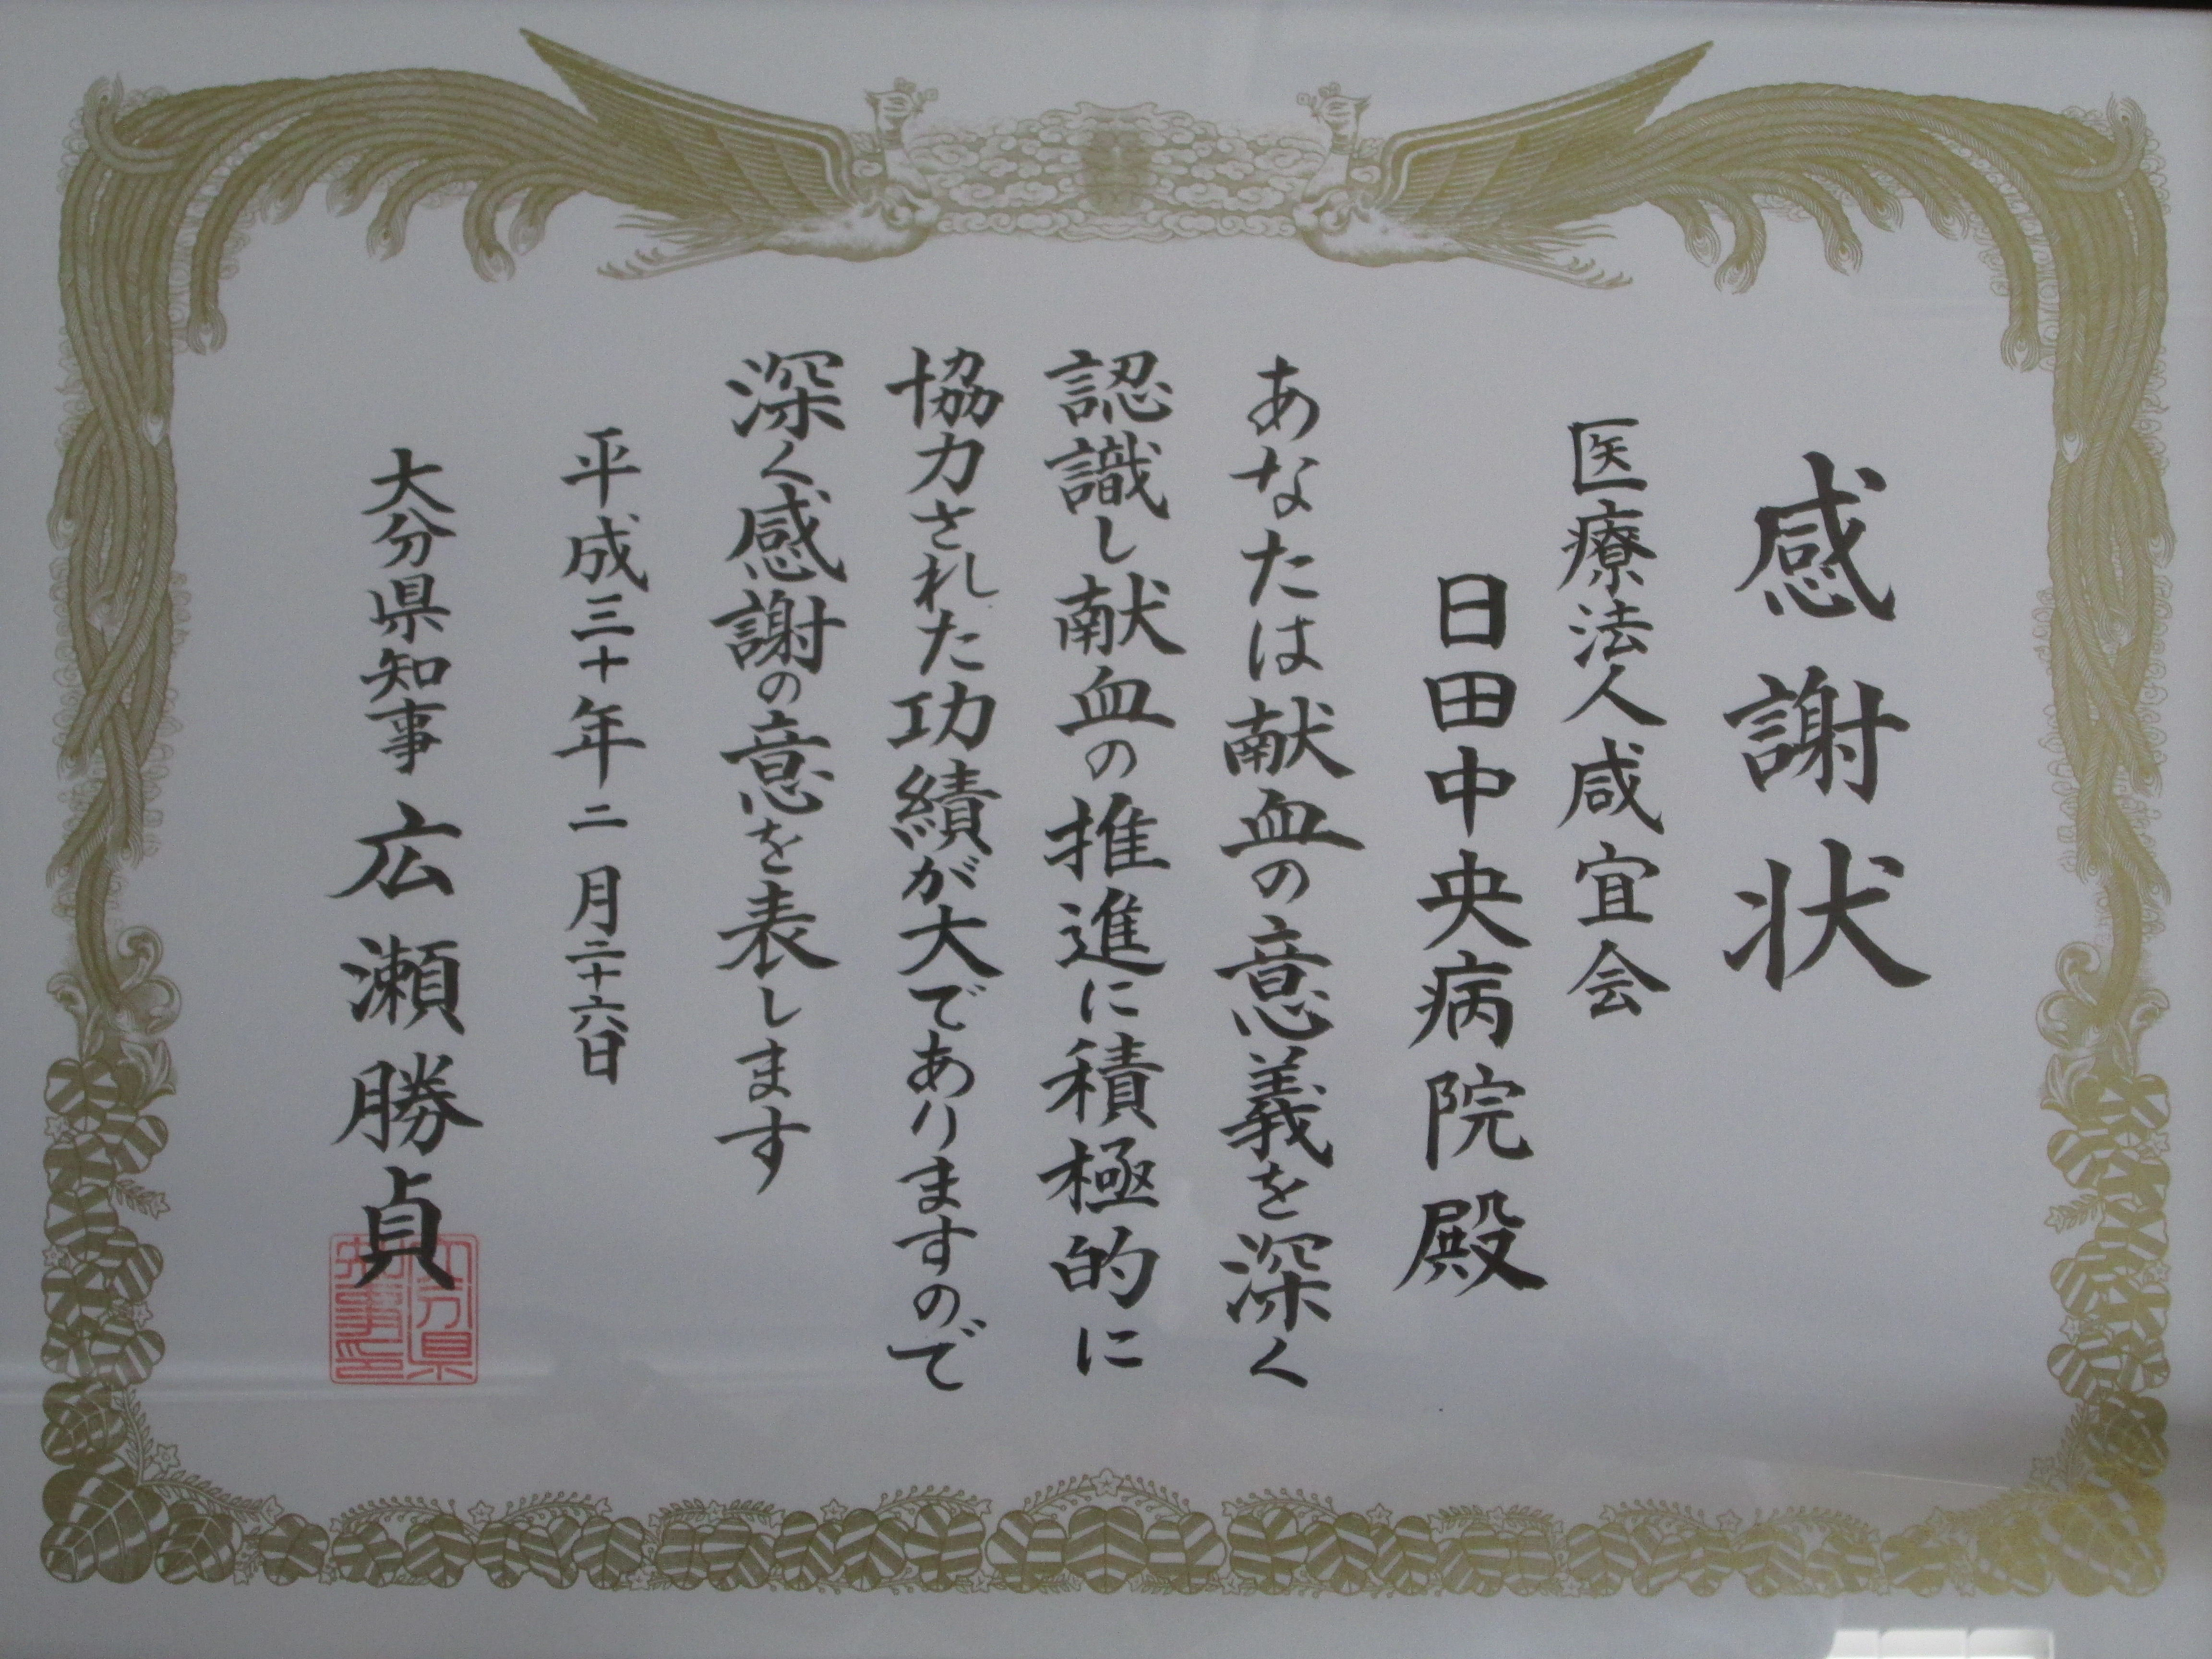 感謝状
医療法人咸宜会
日田中央病院殿
あなたは献血の意義を深く
認識し献血の推進に積極的に
協力された功績が大でありますので
深く感謝の意を表します
平成三十年二月二十六日
大分県知事 広瀬勝貞
大分県
知事印